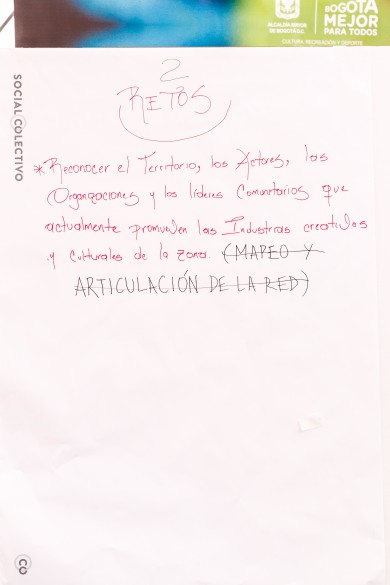 BOGOTÁ
MEJOR
PARA TODOS
ALCALDÍA MAYOR
DE BOGOTÁ D.C.
CULTURA, RECREACIÓN Y DEPORTE
SOCIAL COLECTIVO
2
RETOS
* Reconocer el Territorio, los Actores, las
Organizaciones y los líderes Comunitarios que
actualmente promueven las Industrias creativas
y Culturales de la zona. (MAPEO Y
ARTICULACIÓN DE LA RED)
CO